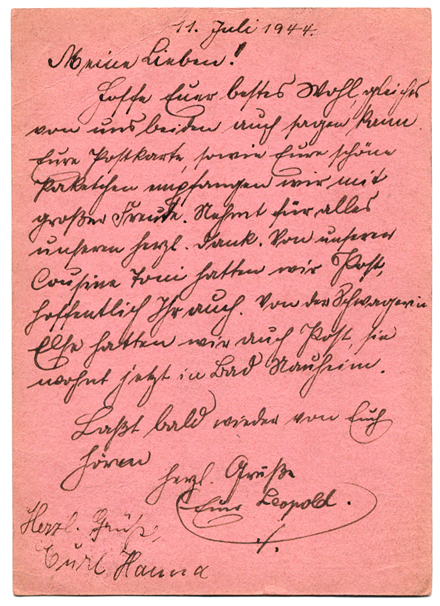 11. Juli 1944.
Meine Lieben!
Hoffe Euer bestes Wohl, gleiches
von uns beiden auch sagen kann.
Eure Postkarte, sowie Eure schöne
Paketchen empfangen wir mit
großer Freude. Nehmt für alles
unseren herzl. Dank. Von unserer
Cousine Toni hatten wir Post,
hoffentlich Ihr auch. Von der Schwägerin
Else hatten wir auch Post, sie
wohnt jetzt in Bad Nauheim.
Laßt bald wieder von Euch
hören
herzl. Grüße
Euer Leopold.
Herzl. Grüße,
Eure Hanna